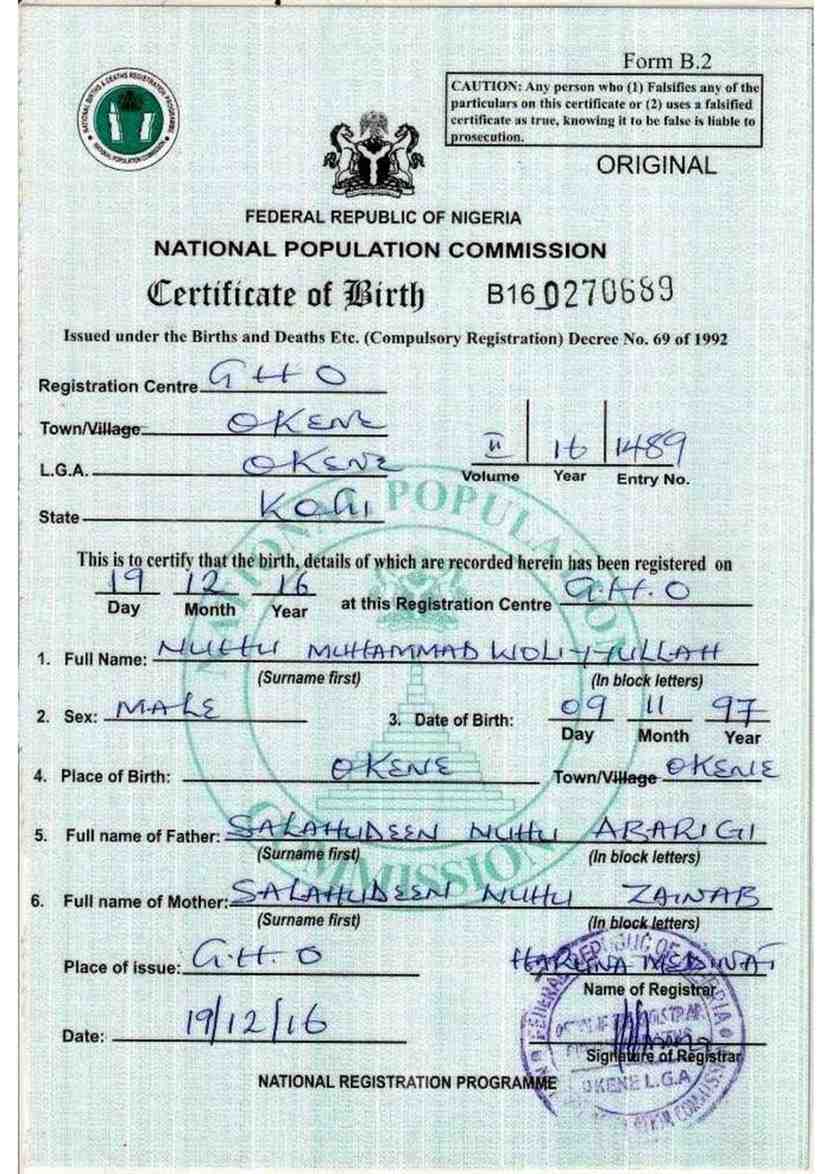 Form B.2
CAUTION: Any person who (1) Falsifies any of the
particulars on this certificate or (2) uses a falsified
certificate as true, knowing it to be false is liable to
prosecution.
ORIGINAL
NATIONAL BIRTHS & DEATHS REGISTRATION PROGRAMME
NATIONAL POPULATION COMMISSION
FEDERAL REPUBLIC OF NIGERIA
NATIONAL POPULATION COMMISSION
Certificate of Birth B16 0270689
Issued under the Births and Deaths Etc. (Compulsory Registration) Decree No. 69 of 1992
Registration Centre GHO
Town/Village OKENE
L.G.A. OKENE
II 16 1489
Volume Year Entry No.
State Kogi
NATIONAL POPULATION COMMISSION
This is to certify that the birth, details of which are recorded herein has been registered on
19 12 16 at this Registration Centre G.H.O
Day Month Year
1. Full Name: NUHU MUHAMMAD WOLIYYULLAH
(Surname first) (In block letters)
2. Sex: MALE 3. Date of Birth: 09 11 97
Day Month Year
4. Place of Birth: OKENE Town/Village OKENE
5. Full name of Father: SALAHUDEEN NUHU ABARIGI
(Surname first) (In block letters)
6. Full name of Mother: SALAHUDEEN NUHU ZAINAB
(Surname first) (In block letters)
Place of issue: G.H.O HARUNA MEDINAT
Name of Registrar
Date: 19/12/16
Signature of Registrar
OKENE L.G.A
NATIONAL REGISTRATION PROGRAMME